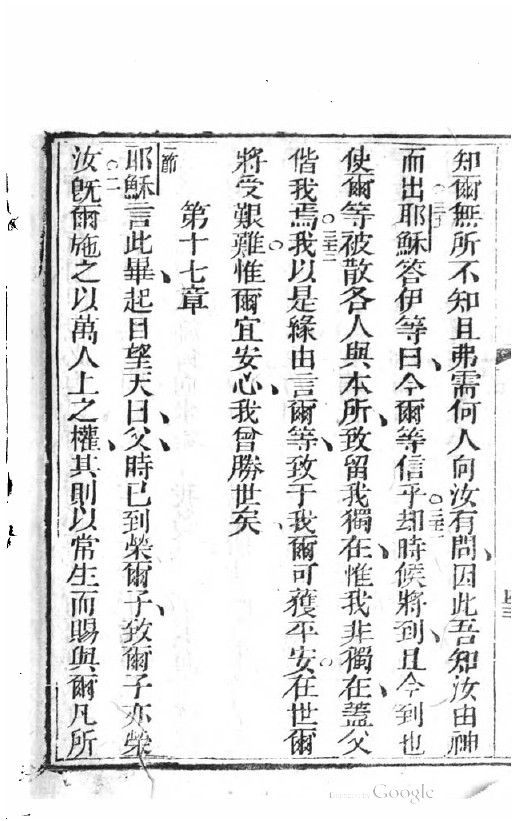 知爾無所不知且弗需何人向汝有問、因此吾知汝由神
而出○三十一耶穌答伊等曰、今爾等信乎○却時候將到、且今到也
使爾等被散各人與本所、致留我獨在、惟我非獨在、蓋父
偕我焉○三十三我以是緣由言爾等、致于我爾可獲平安○在世爾
將受艱難○惟爾宜安心、我曾勝世矣
第十七章
一節耶穌言此畢、起目望天曰、父、時已到榮爾子、致爾子亦榮
汝○二既爾施之以萬人上之權、其則以常生而賜與爾凡所
Google